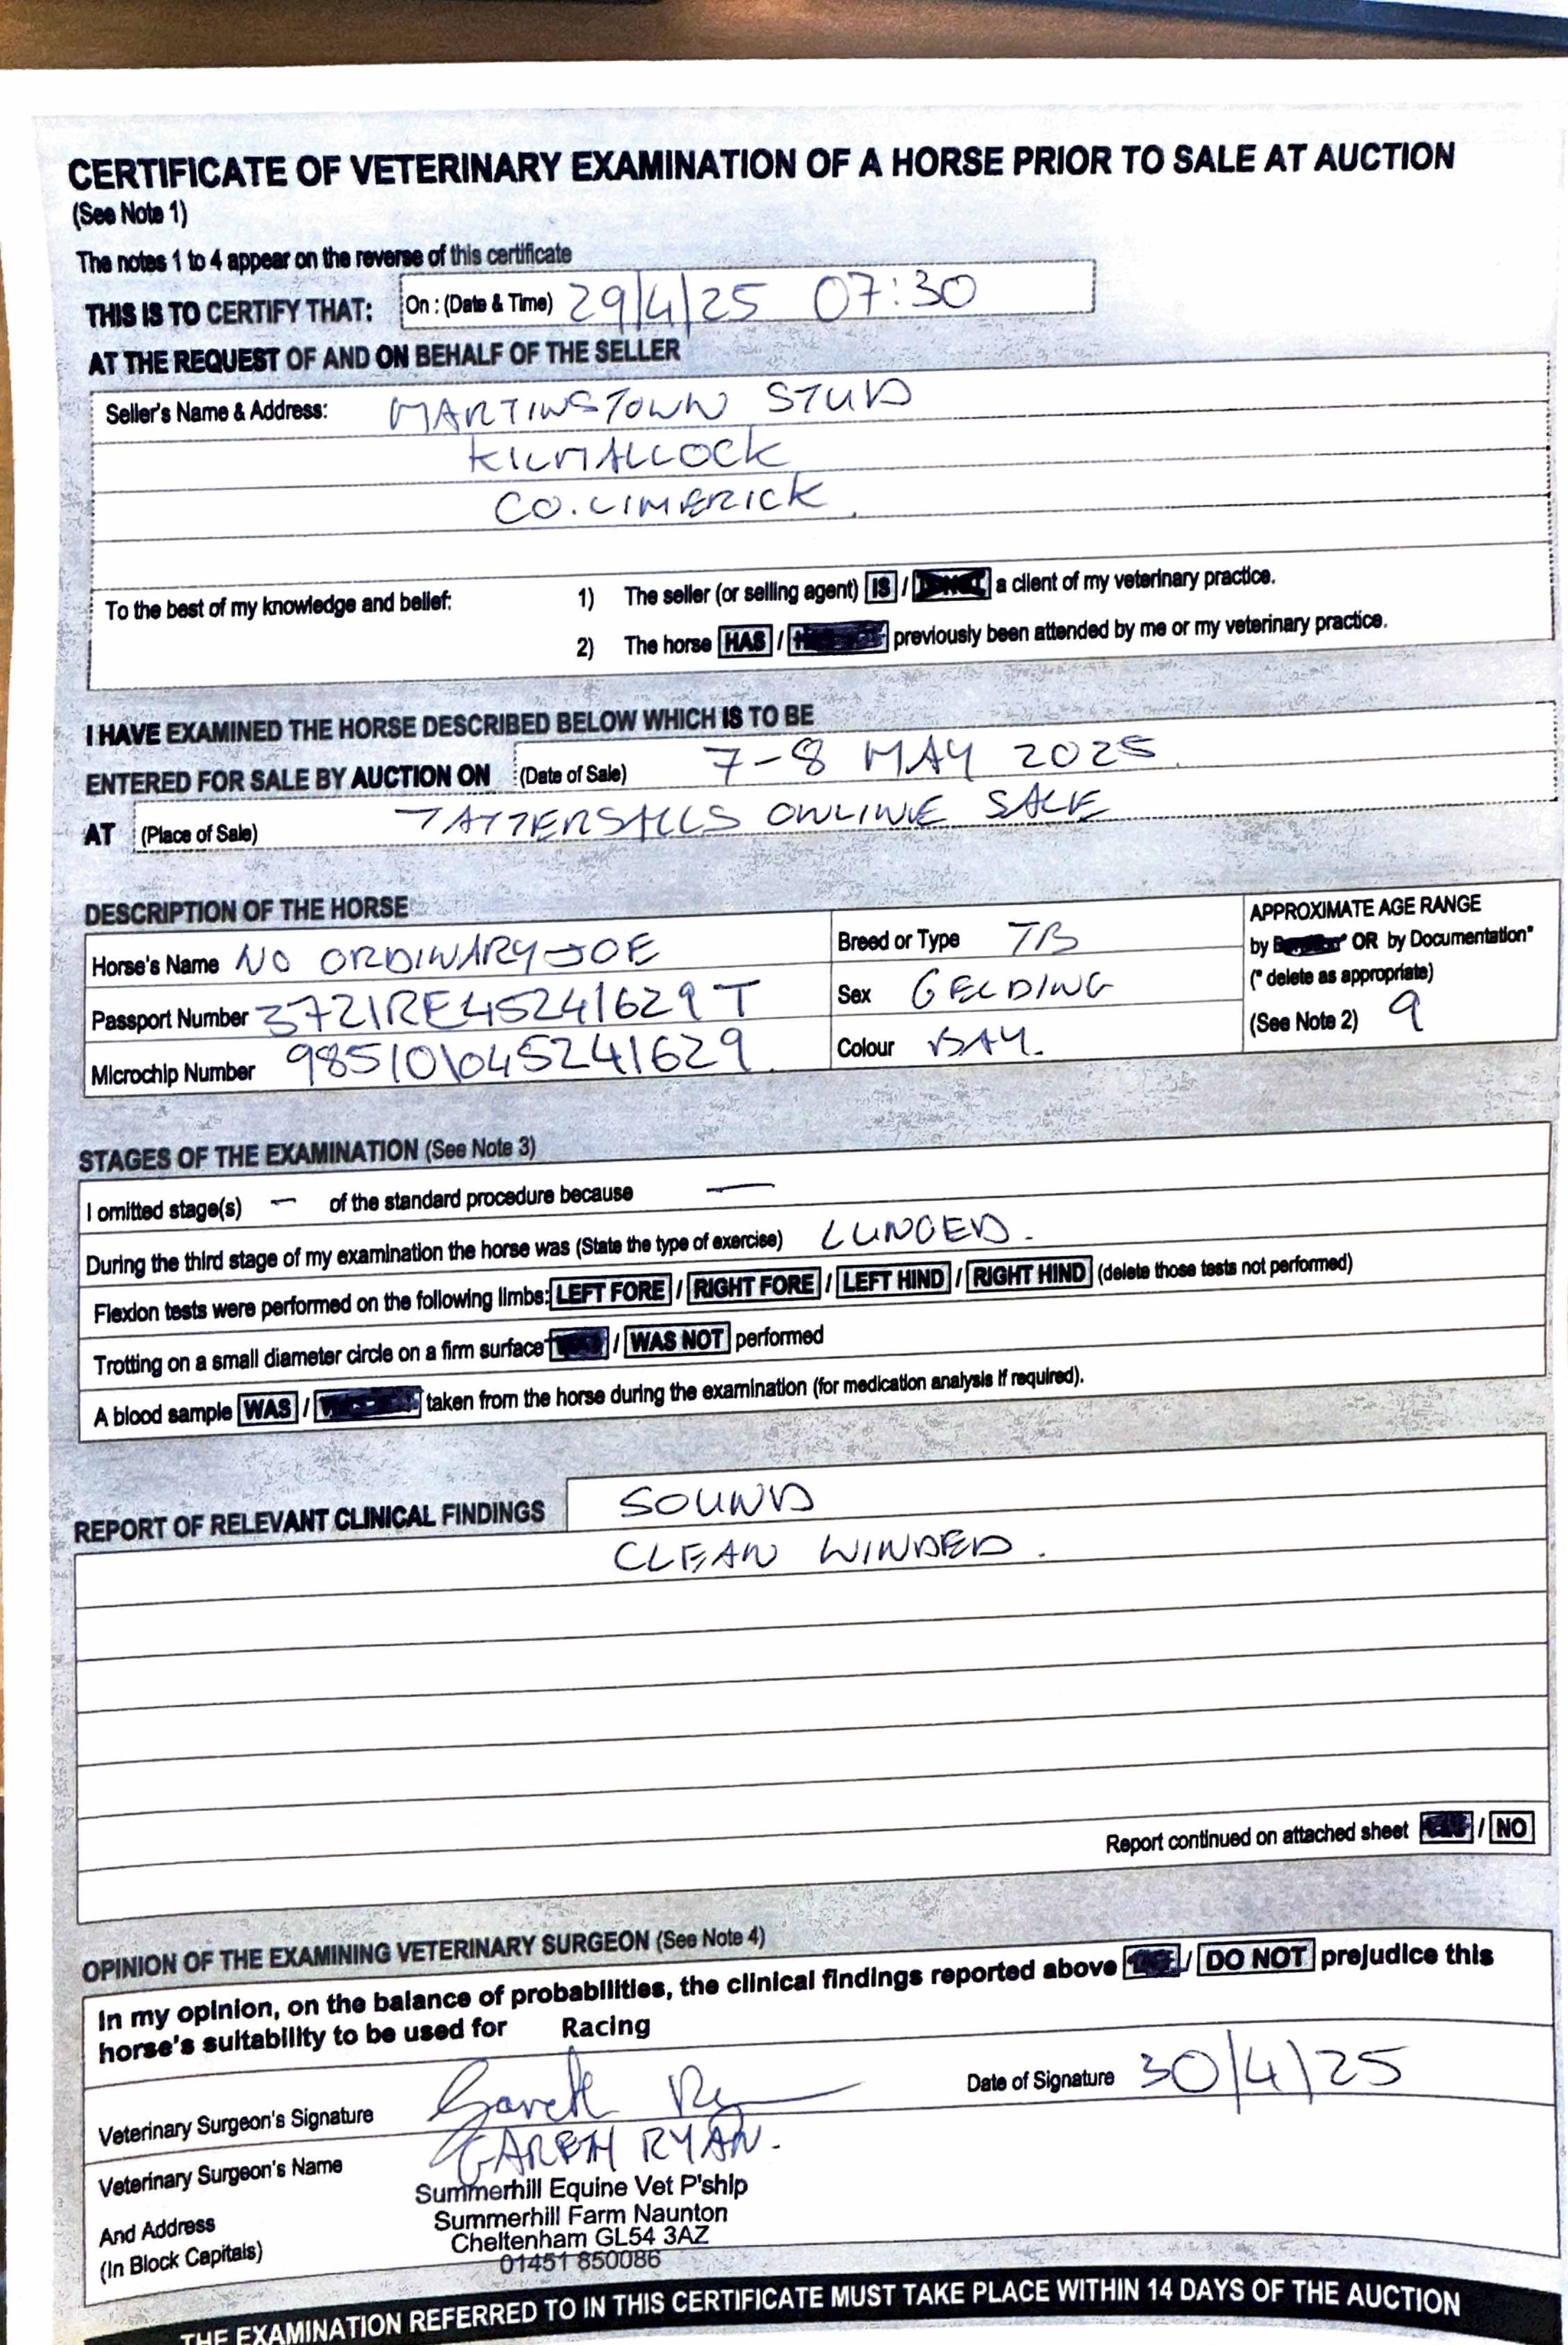 CERTIFICATE OF VETERINARY EXAMINATION OF A HORSE PRIOR TO SALE AT AUCTION
(See Note 1)
The notes 1 to 4 appear on the reverse of this certificate
THIS IS TO CERTIFY THAT: On : (Date & Time) 29/4/25 07:30
AT THE REQUEST OF AND ON BEHALF OF THE SELLER
Seller's Name & Address: MARTINSTOWN STUD
KILMALLOCK
CO. LIMERICK
To the best of my knowledge and belief: 1) The seller (or selling agent) IS / a client of my veterinary practice.
2) The horse HAS / previously been attended by me or my veterinary practice.
I HAVE EXAMINED THE HORSE DESCRIBED BELOW WHICH IS TO BE
ENTERED FOR SALE BY AUCTION ON (Date of Sale) 7-8 MAY 2025
AT (Place of Sale) TATTERSALLS ONLINE SALE
DESCRIPTION OF THE HORSE
Horse's Name NO ORDINARY JOE
Passport Number 372IRE45241629T
Microchip Number 985101045241629
Breed or Type TB
Sex GELDING
Colour BAY.
APPROXIMATE AGE RANGE
by OR by Documentation*
(* delete as appropriate)
(See Note 2) 9
STAGES OF THE EXAMINATION (See Note 3)
I omitted stage(s) — of the standard procedure because —
During the third stage of my examination the horse was (State the type of exercise) LUNGED.
Flexion tests were performed on the following limbs: LEFT FORE / RIGHT FORE / LEFT HIND / RIGHT HIND (delete those tests not performed)
Trotting on a small diameter circle on a firm surface / WAS NOT performed
A blood sample WAS / taken from the horse during the examination (for medication analysis if required).
REPORT OF RELEVANT CLINICAL FINDINGS SOUND
CLEAN WINDED.
Report continued on attached sheet / NO
OPINION OF THE EXAMINING VETERINARY SURGEON (See Note 4)
In my opinion, on the balance of probabilities, the clinical findings reported above / DO NOT prejudice this
horse's suitability to be used for Racing
Veterinary Surgeon's Signature Gareth Ryan Date of Signature 30/4/25
Veterinary Surgeon's Name GARETH RYAN.
And Address
(In Block Capitals)
Summerhill Equine Vet P'ship
Summerhill Farm Naunton
Cheltenham GL54 3AZ
01451 850086
THE EXAMINATION REFERRED TO IN THIS CERTIFICATE MUST TAKE PLACE WITHIN 14 DAYS OF THE AUCTION